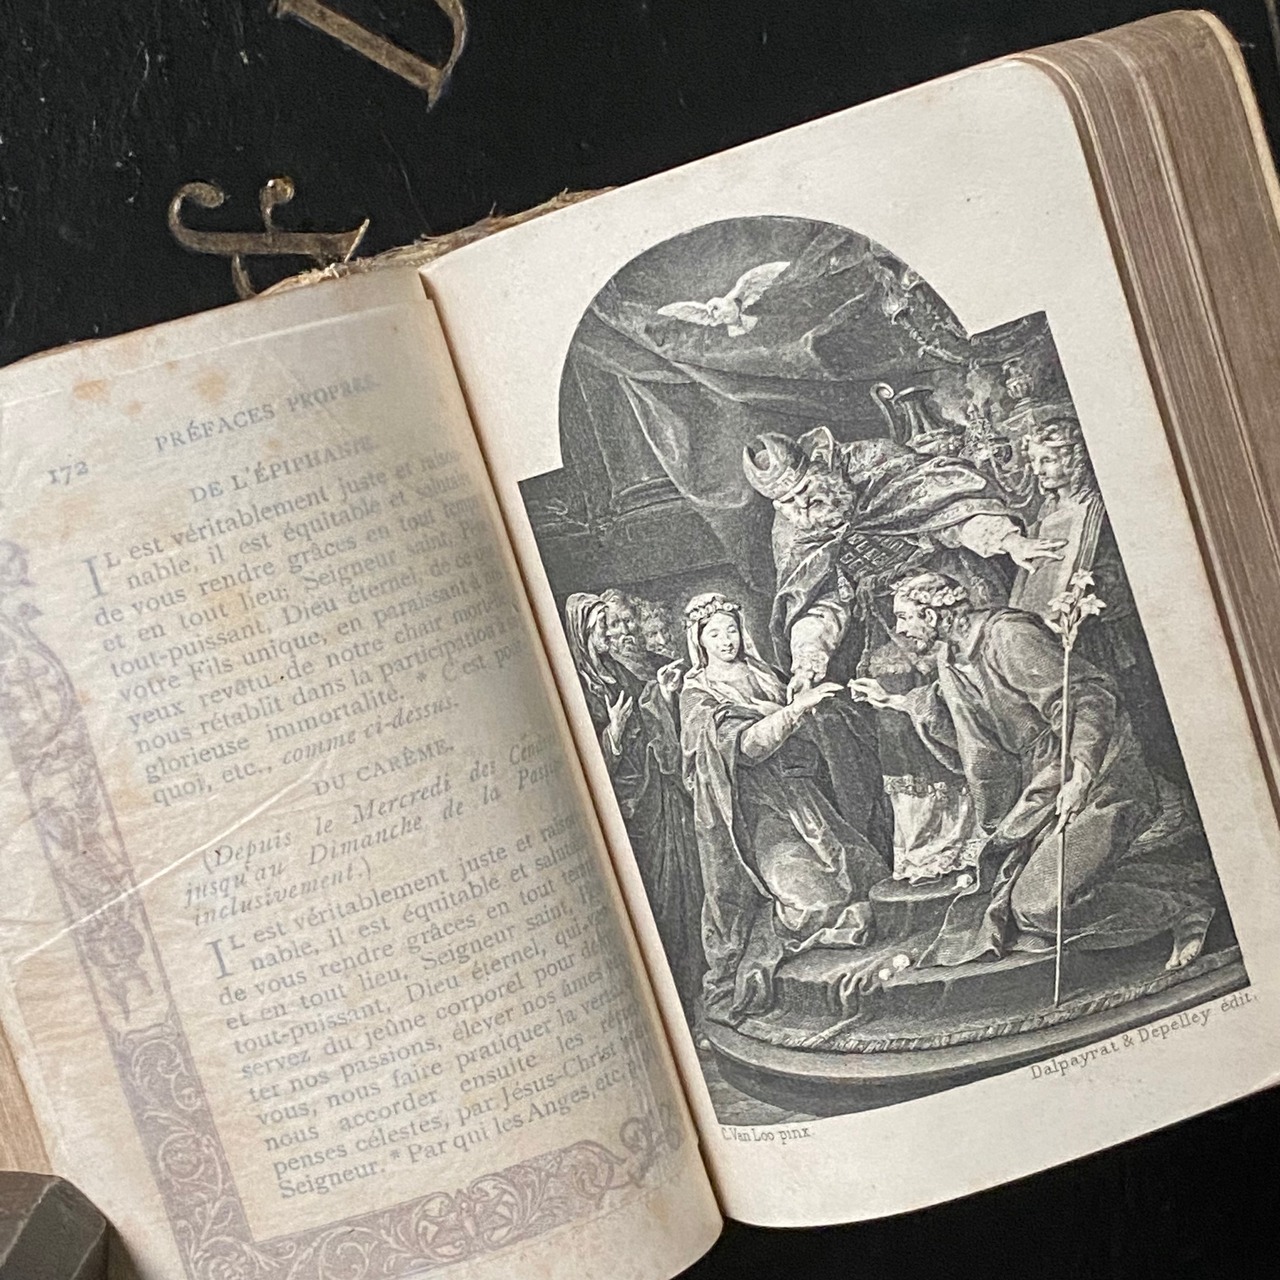 172
PRÉFACES PROPRES.
DE L'ÉPIPHANIE.
IL est véritablement juste et
nable, il est équitable et
de vous rendre grâces en tout
et en tout lieu; Seigneur saint,
tout-puissant, Dieu éternel, de ce
votre Fils unique, en paraissant à
yeux revêtu de notre chair
nous rétablit dans la participation
glorieuse immortalité. * C'est
quoi, etc., comme ci-dessus.
DU CARÊME.
(Depuis le Mercredi des
jusqu'au Dimanche de la
inclusivement.)
IL est véritablement juste et
nable, il est équitable et
de vous rendre grâces en tout
et en tout lieu, Seigneur saint,
tout-puissant, Dieu éternel, qui
servez du jeûne corporel pour
ter nos passions, élever nos âmes
vous, nous faire pratiquer la
nous accorder ensuite les
penses célestes, par Jésus-Christ
Seigneur. * Par qui les Anges, etc.
C. Van Loo pinx.
Dalpayrat & Depelley édit.